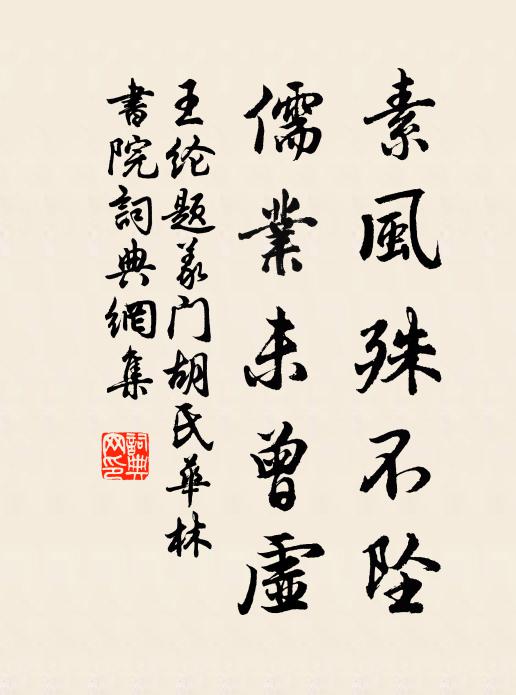 素風殊不坠
儒業未曾虛
王纶题义门胡氏華林
書院詞典網集
詞典网印